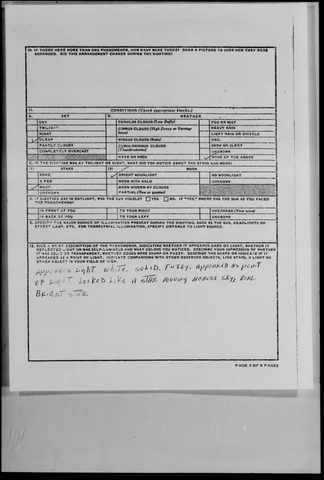 10. IF THERE WERE MORE THAN ONE PHENOMENON, HOW MANY WERE THERE? DRAW A PICTURE TO SHOW HOW THEY WERE
ARRANGED. DID THIS ARRANGEMENT CHANGE DURING THE SIGHTING?
11. CONDITIONS (Check appropriate blocks.)
A. SKY B. WEATHER
DAY CUMULUS CLOUDS (Low fluffy) FOG OR MIST
TWILIGHT CIRRUS CLOUDS (High fleecy or Herring-bone) HEAVY RAIN
NIGHT NIMBUS CLOUDS (Rain) LIGHT RAIN OR DRIZZLE
CLEAR HAIL
PARTLY CLOUDY CUMULONIMBUS CLOUDS (Thunderstorm) SNOW OR SLEET
COMPLETELY OVERCAST UNKNOWN
HAZE OR SMOG NONE OF THE ABOVE
C. IF THE SIGHTING WAS AT TWILIGHT OR NIGHT, WHAT DID YOU NOTICE ABOUT THE STARS AND MOON?
(1) STARS (2) MOON
NONE BRIGHT MOONLIGHT NO MOONLIGHT
A FEW MOON WITH HALO UNKNOWN
MANY MOON HIDDEN BY CLOUDS
UNKNOWN PARTIAL (New or quarter)
D. IF SIGHTING WAS IN DAYLIGHT, WAS THE SUN VISIBLE? YES NO. IF "YES," WHERE WAS THE SUN AS YOU FACED
THE PHENOMENON?
IN FRONT OF YOU TO YOUR RIGHT OVERHEAD (Near noon)
IN BACK OF YOU TO YOUR LEFT UNKNOWN
E. SPECIFY THE MAJOR SOURCE OF ILLUMINATION PRESENT DURING THE SIGHTING, SUCH AS THE SUN, HEADLIGHTS OR
STREET LAMP, ETC. FOR TERRESTRIAL ILLUMINATION, SPECIFY DISTANCE TO LIGHT SOURCE.
12. GIVE A BRIEF DESCRIPTION OF THE PHENOMENON, INDICATING WHETHER IT APPEARED DARK OR LIGHT, WHETHER IT
REFLECTED LIGHT OR WAS SELF-LUMINOUS AND WHAT COLORS YOU NOTICED. DESCRIBE YOUR IMPRESSION OF WHETHER
IT WAS SOLID OR TRANSPARENT, WHETHER EDGES WERE SHARP OR FUZZY. DESCRIBE THE SHAPE OR INDICATE IF IT
APPEARED AS A POINT OF LIGHT. INDICATE COMPARISONS WITH OTHER OBSERVED OBJECTS, LIKE STARS, A LIGHT OR
OTHER OBJECT IN YOUR FIELD OF VIEW.
Appeared Light. White, Solid, Fuzzy, Appeared as point
of Light. Looked Like A STAR moving Across sky, Real
Bright STAR.
PAGE 4 OF 8 PAGES